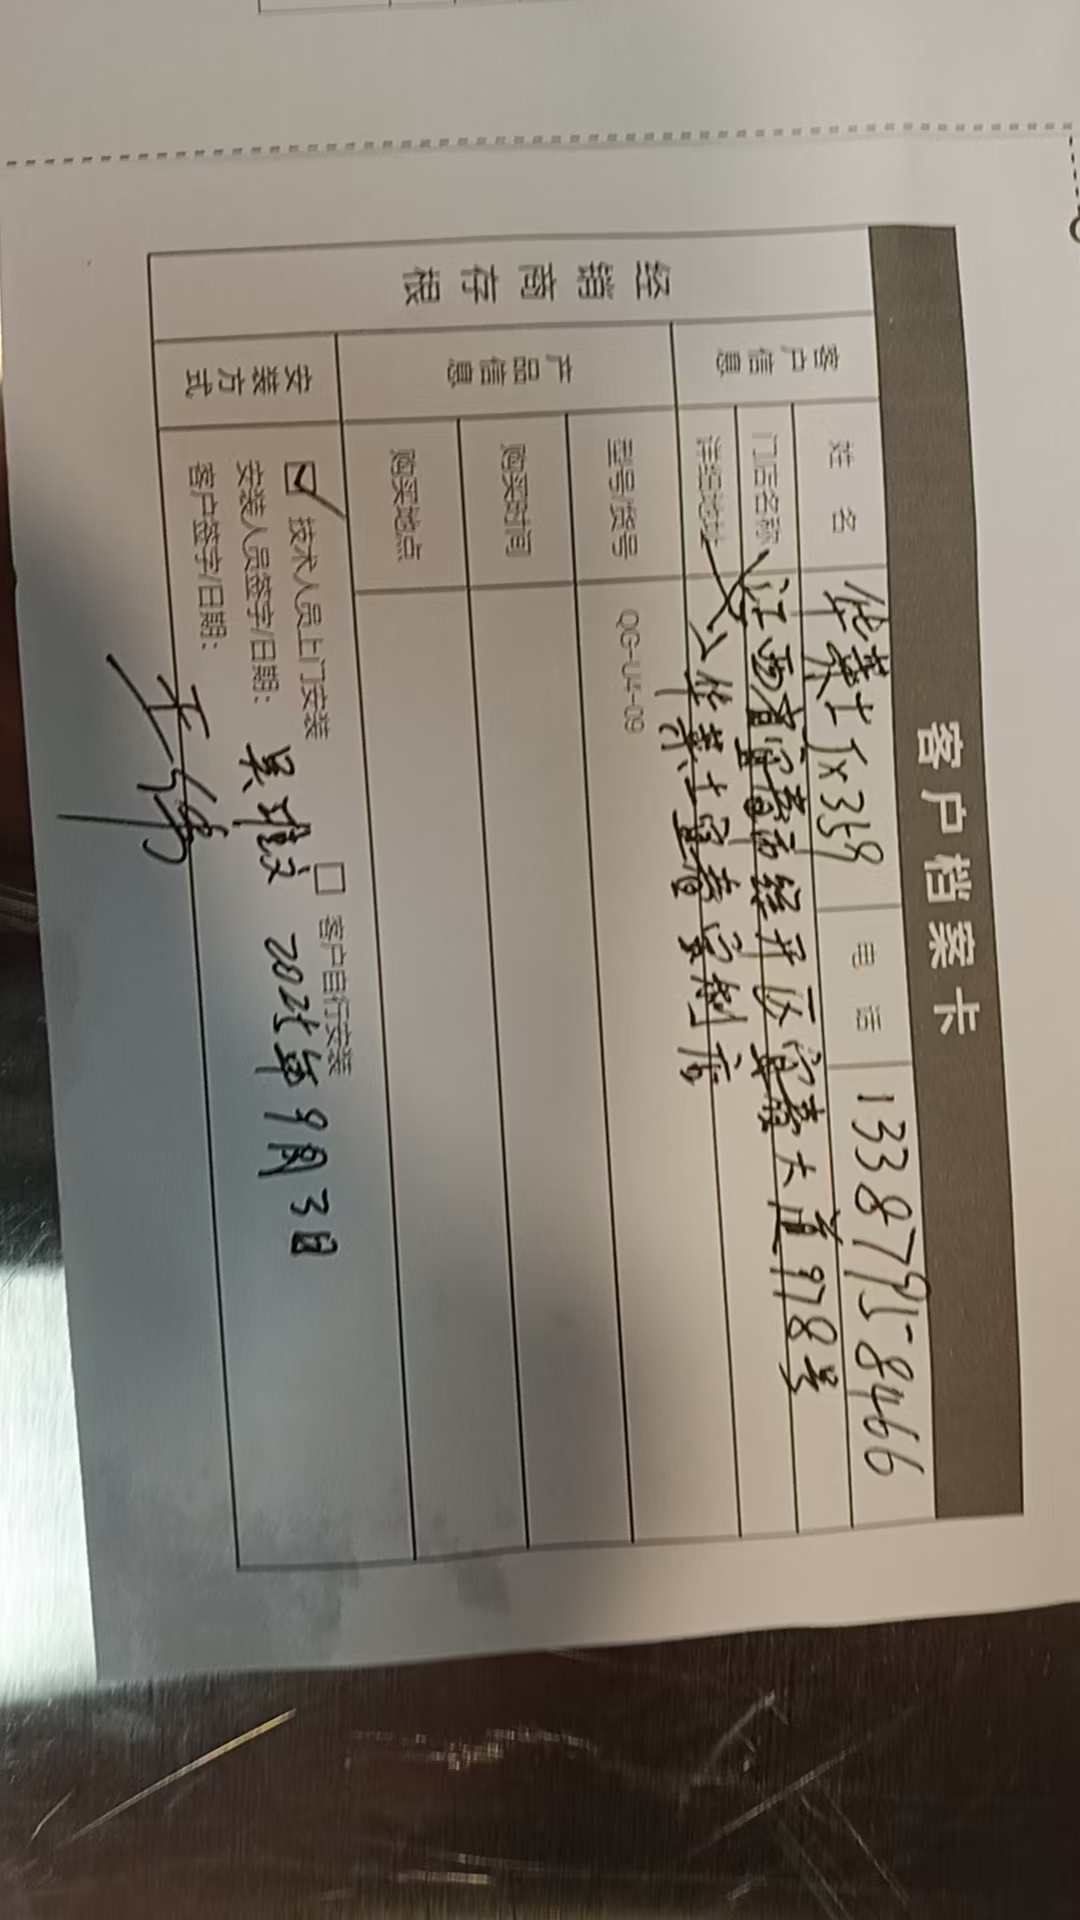 客户档案卡
经销商存根
客户信息
姓 名
华莱士Jx359
电 话
13387958466
门店名称
江西省宜春市经开区宜春大道978号
详细地址
华莱士宜春
店
产品信息
型号/货号
QG-U4-09
购买时间
购买地点
安装方式
技术人员上门安装
客户自行安装
安装人员签字/日期：
吴
2025年9月3日
客户签字/日期：